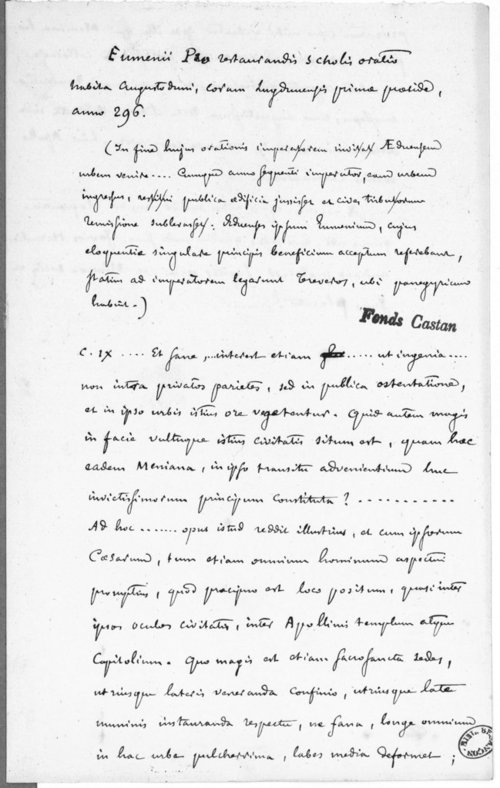 Eumenii Pro restaurandis scholis oratio
habita Augustoduni, coram Lugdunensis primæ præside,
anno 296.
(In fine hujus orationis imperatorem invitat Æduensem
urbem venire.... Cumque anno sequenti imperator, eam urbem
ingressus, restitui publica ædificia jussisset et cives tributorum
remissione sublevasset: Æduenses ipsum Eumenium, cujus
eloquentiæ singulare principis beneficium acceptum referebant,
statim ad imperatorem legarunt Treveros, ubi panegyricum
habuit.)
Fonds Castan
C. IX .... Et sane, ..interest etiam ..... ut ingenia....
non intra privatos parietes, sed in publica ostentatione,
et in ipso urbis istius ore vegetentur. Quid autem magis
in facie vultuque istius civitatis situm est, quam hæc
eadem Meniana, in ipso transitu advenientium huc
invictissimorum principum constituta? ...........
Ad hoc ....... opus istud reddit illustrius, et cum ipsorum
Cæsarum, tum etiam omnium hominum aspectui
promptius, quod præcipuo est loco positum, quasi inter
ipsos oculos civitatis, inter Apollinis templum atque
Capitolium. Quo magis est etiam sacrosancta sedes,
utriusque lateris veneranda confinio, utriusque late
numinis instauranda respectu, ne fana, longe omnium
in hac urbe pulcherrima, labes media deformet;